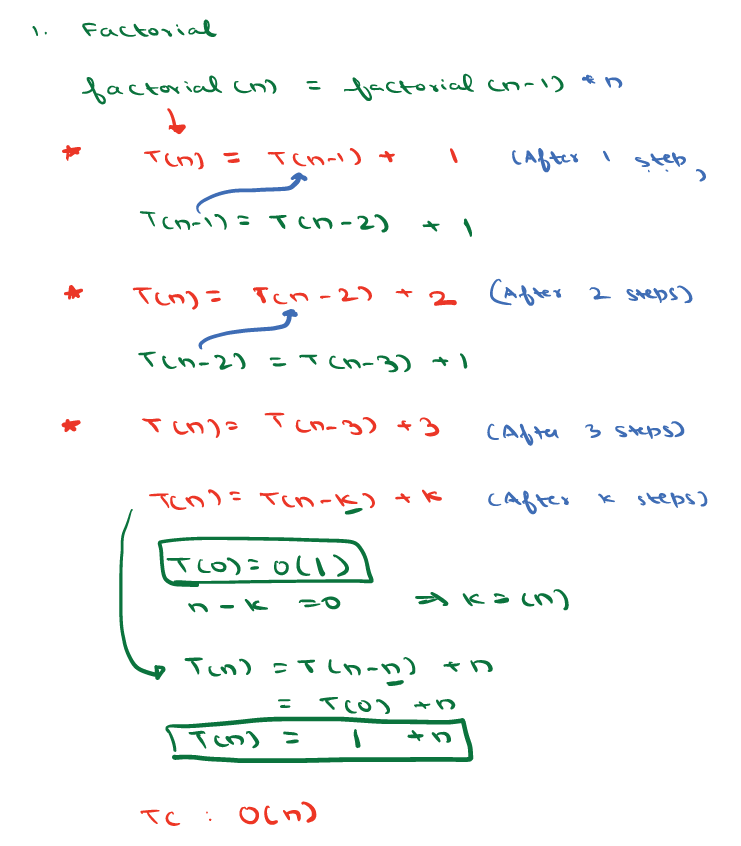 1. Factorial
factorial (n) = factorial (n-1) * n
* T(n) = T(n-1) + 1 (After 1 step)
T(n-1) = T(n-2) + 1
* T(n) = T(n-2) + 2 (After 2 steps)
T(n-2) = T(n-3) + 1
* T(n) = T(n-3) + 3 (After 3 steps)
T(n) = T(n-k) + k (After k steps)
T(0) = O(1)
n - k = 0 ⇒ k = (n)
T(n) = T(n-n) + n
= T(0) + n
T(n) = 1 + n
TC : O(n)